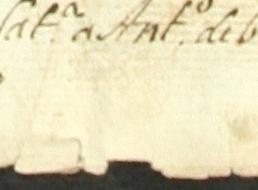 Cat.ª a Ant.º de b